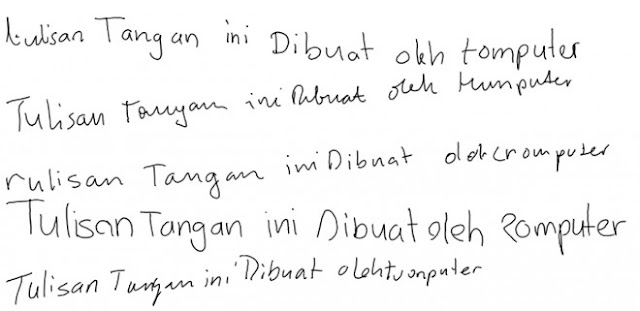 tulisan Tangan ini Dibuat oleh komputer
Tulisan Tangan ini Dibuat oleh kumputer
rulisan Tangan ini Dibuat oleh cromputer
Tulisan Tangan ini Dibuat oleh Romputer
Tulisan Tangan ini Dibuat oleh